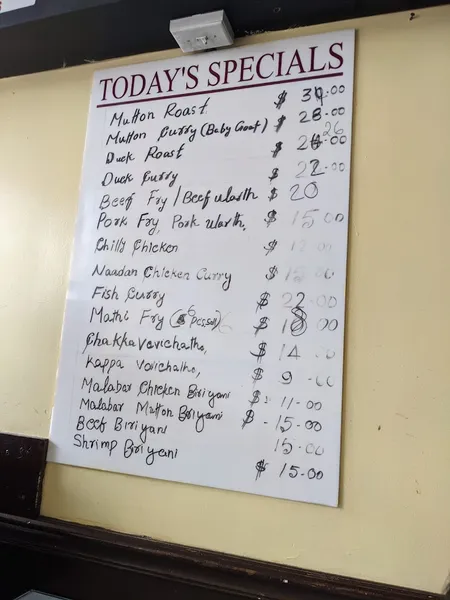 TODAY'S SPECIALS
Mutton Roast $ 30.00
Mutton Curry (Baby Goat) $ 28.00
Duck Roast $ 26.00
Duck Curry $ 22.00
Beef Fry / Beef Ularth $ 20
Pork Fry, Pork Ularth, $ 15 00
Chilly Chicken $
Naadan Chicken Curry $ 00
Fish Curry $ 22.00
Mathi Fry (6 $ 18 00
Chakka Vevichatho, $ 14 00
Kappa Vevichatho, $ 9 -00
Malabar Chicken Biriyani $ 11-00
Malabar Mutton Briyani $ -15.00
Beef Biriyani 15.00
Shrimp Briyani $ 15.00